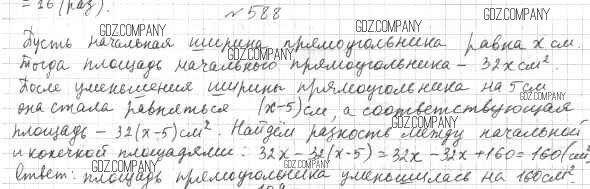 = 16 (раз).
№588
GDZ.COMPANY
GDZ.COMPANY
Пусть начальная ширина прямоугольника равна x см.
GDZ.COMPANY
Тогда площадь начального прямоугольника – 32x см².
После уменьшения ширины прямоугольника на 5 см
GDZ.COMPANY
она стала равняться (x-5) см, а соответствующая
GDZ.COMPANY
площадь – 32(x-5) см². Найдём разность между начальной
и конечной площадями: 32x-32(x-5)=32x-32x+160=160(см²)
GDZ.COMPANY
GDZ.COMPANY
Ответ: площадь прямоугольника уменьшилась на 160 см²